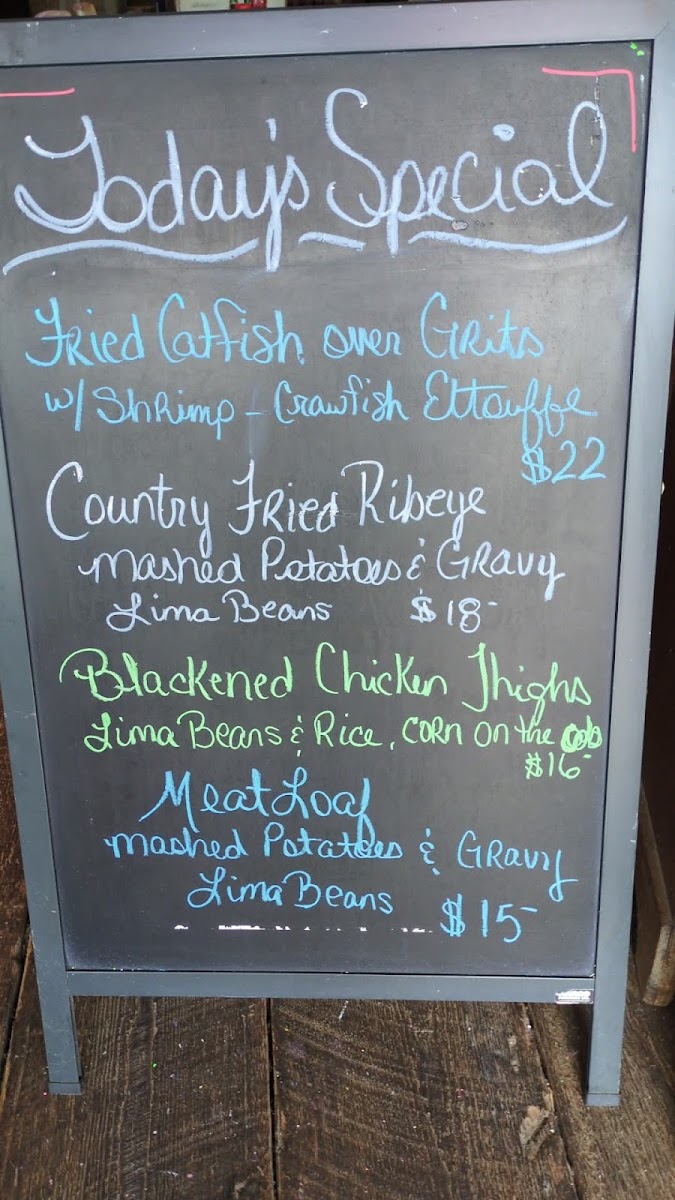 Today's Special
Fried Catfish over Grits
w/ Shrimp - Crawfish Ettouffe
$22
Country Fried Ribeye
mashed Potatoes & Gravy
Lima Beans $18-
Blackened Chicken Thighs
Lima Beans & Rice, corn on the cob
$16-
Meat Loaf
mashed Potatoes & Gravy
Lima Beans $15-